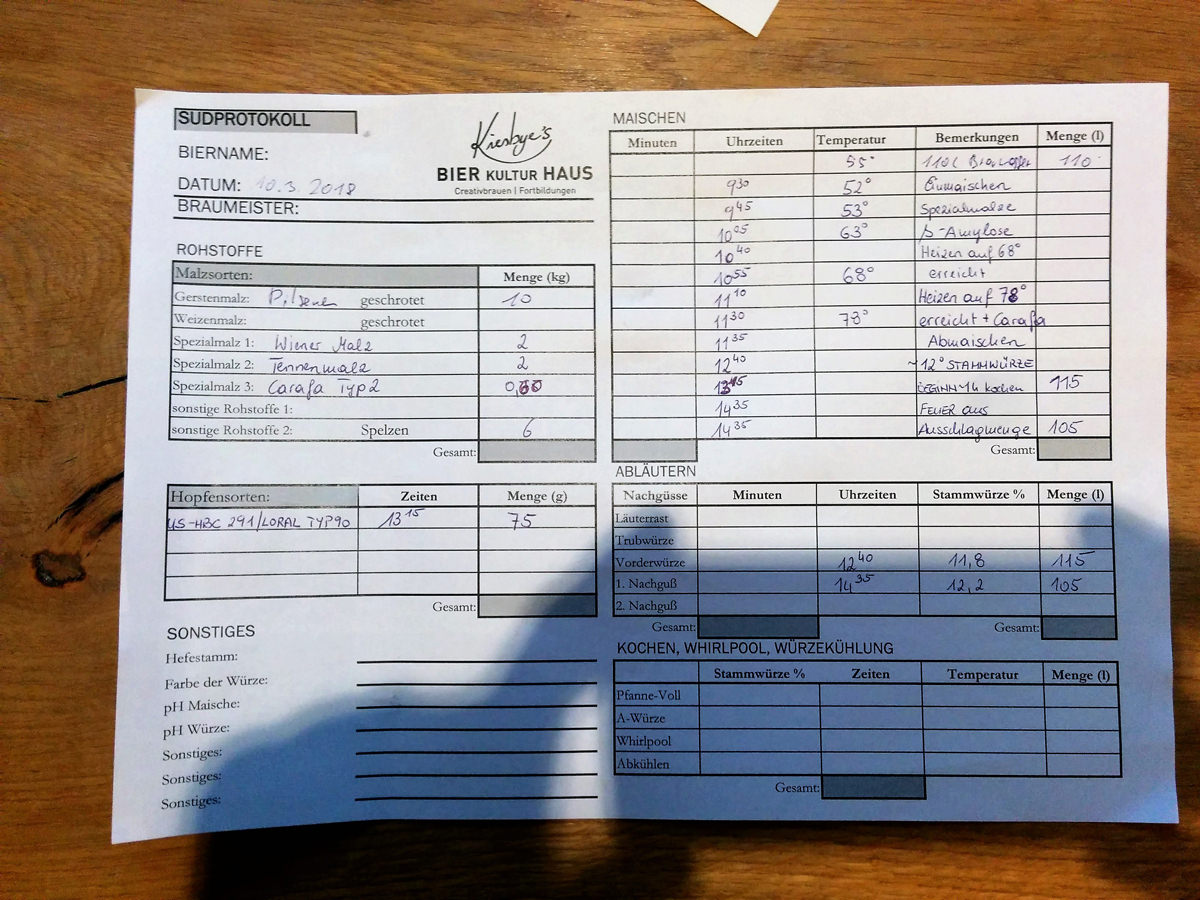 SUDPROTOKOLL
BIERNAME:
DATUM: 10.3.2018
BRAUMEISTER:
Kiesbye's
BIER KULTUR HAUS
Creativbrauen | Fortbildungen
ROHSTOFFE
Malzsorten: Menge (kg)
Gerstenmalz: Pilsener geschrotet 10
Weizenmalz: geschrotet
Spezialmalz 1: Wiener Malz 2
Spezialmalz 2: Tennenmalz 2
Spezialmalz 3: Carafa Typ 2
sonstige Rohstoffe 1:
sonstige Rohstoffe 2: Spelzen 6
Gesamt:
Hopfensorten: Zeiten Menge (g)
US-HBC 291/LORAL TYP90 13 15 75
Gesamt:
SONSTIGES
Hefestamm:
Farbe der Würze:
pH Maische:
pH Würze:
Sonstiges:
Sonstiges:
Sonstiges:
MAISCHEN
Minuten Uhrzeiten Temperatur Bemerkungen Menge (l)
55° 110l 110
9 30 52° Einmaischen
9 45 53° Spezialmalze
10 05 63° β-Amylose
10 40 Heizen auf 68°
10 55 68° erreicht
11 10 Heizen auf 78°
11 30 78° erreicht + Carafa
11 35 Abmaischen
12 40 ~12° STAMMWÜRZE
BEGINN 1h kochen 115
14 35 FEUER aus
14 35 Ausschlagmenge 105
Gesamt:
ABLÄUTERN
Nachgüsse Minuten Uhrzeiten Stammwürze % Menge (l)
Läuterrast
Trubwürze
Vorderwürze 12 40 11,8 115
1. Nachguß 14 35 12,2 105
2. Nachguß
Gesamt: Gesamt:
KOCHEN, WHIRLPOOL, WÜRZEKÜHLUNG
Stammwürze % Zeiten Temperatur Menge (l)
Pfanne-Voll
A-Würze
Whirlpool
Abkühlen
Gesamt: